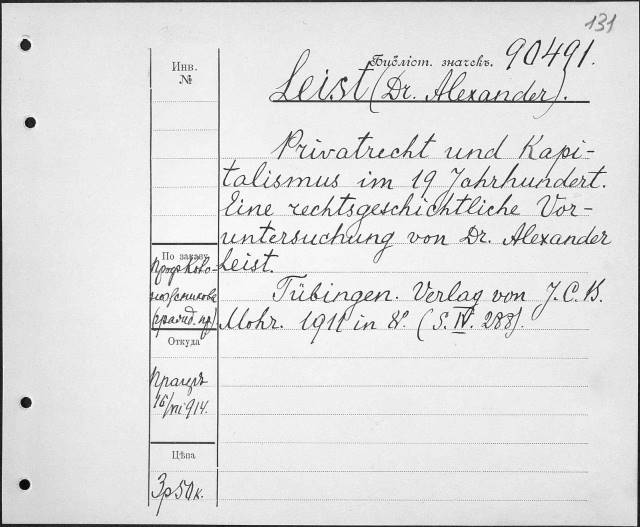 131
Библіот. значекъ. 90491.
Leist (Dr. Alexander).
Privatrecht und Kapi-
talismus im 19 Jahrhundert.
Eine rechtsgeschichtliche Vor-
untersuchung von Dr. Alexander
Leist.
Tübingen. Verlag von J. C. B.
Mohr. 1911 in 8º. (S. IV. 288).
Инв.
№
По заказу
Проф.
Откуда
1914.
Цѣна
3р50к.